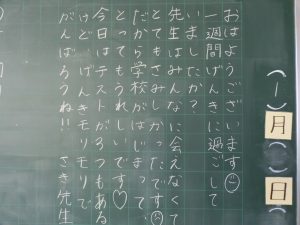 (一)月( )日
おはようございます
一週間げんきに過ごして
いましたか?
先生はみんなに会えなくて
とてもさみしかったです
だから学校がはじまって、
とってもうれしいです♡
今日はテストが3つもある
けど、げんきモリモリで
がんばろうね!! さき先生